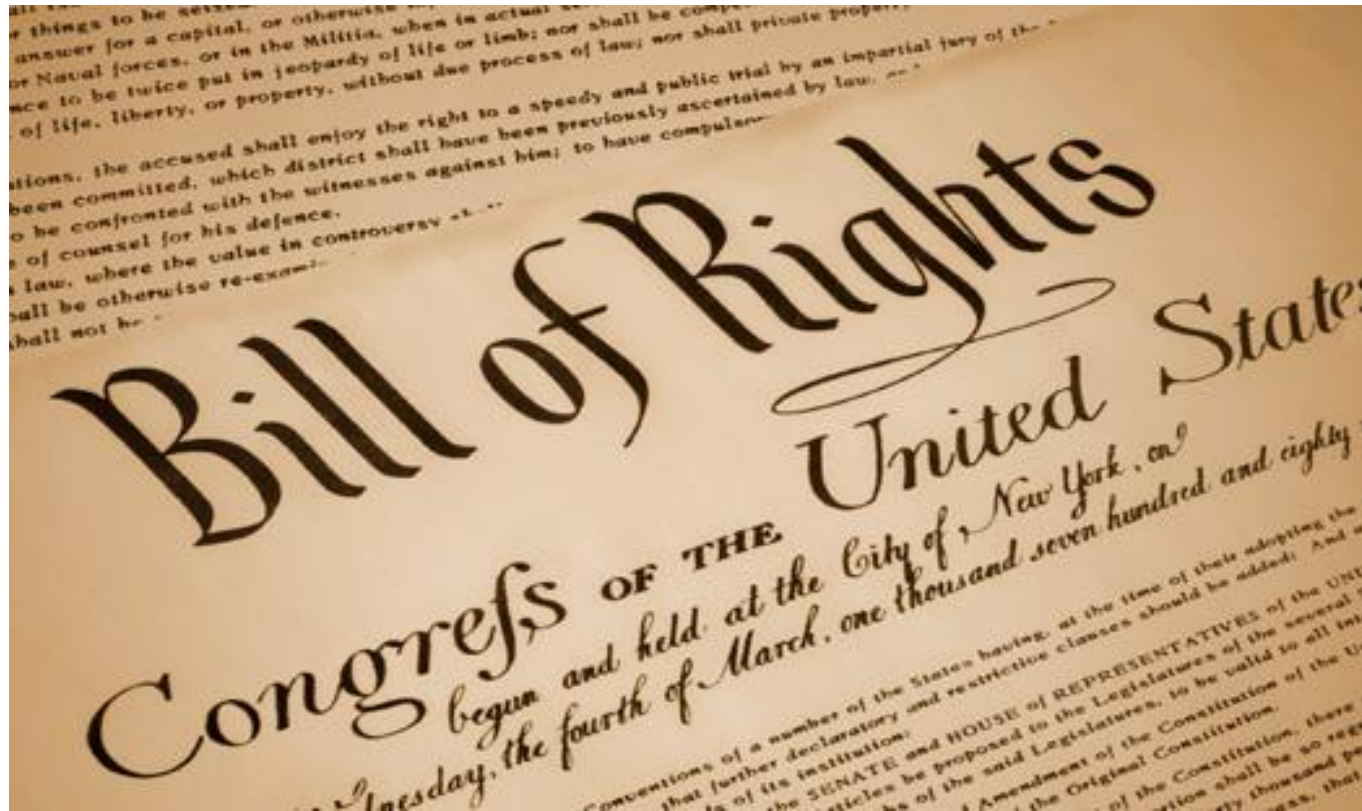 things to be seized
answer for a capital, or otherwise
or Naval forces, or in the Militia, when in actual
to be twice put in jeopardy of life or limb; nor shall be
of life, liberty, or property, without due process of law; nor shall private property
the accused shall enjoy the right to a speedy and public trial by an impartial jury of the
been committed, which district shall have been previously ascertained by law,
be confronted with the witnesses against him; to have
of counsel for his defence.
law, where the value in controversy
be otherwise
shall not be
Bill of Rights
Congreſs OF THE United States
begun and held at the City of New York, on
the fourth of March, one thousand seven hundred and eighty
of a number of the States having, at the time of their adopting the
that further declaratory and restrictive clauses should be added: And
of its institution;
the SENATE and HOUSE of REPRESENTATIVES of the
be proposed to the Legislatures of the several
of the said Legislatures, to be valid to all
Amendment of the Constitution of the
the Original Constitution.
of the Constitution, there
shall be so
thousand
that